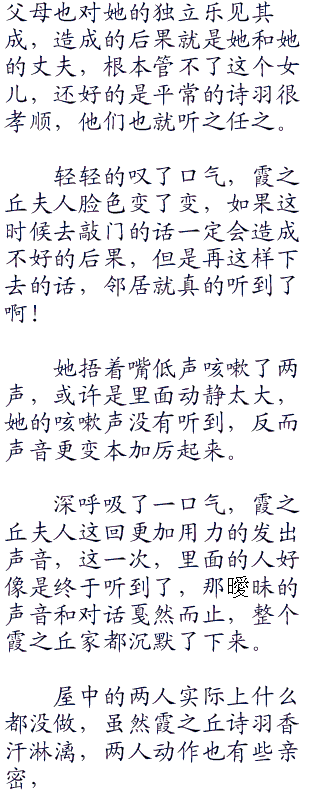 父母也对她的独立乐见其
成，造成的后果就是她和她
的丈夫，根本管不了这个女
儿，还好的是平常的诗羽很
孝顺，他们也就听之任之。
轻轻的叹了口气，霞之
丘夫人脸色变了变，如果这
时候去敲门的话一定会造成
不好的后果，但是再这样下
去的话，邻居就真的听到了
啊！
她捂着嘴低声咳嗽了两
声，或许是里面动静太大，
她的咳嗽声没有听到，反而
声音更变本加厉起来。
深呼吸了一口气，霞之
丘夫人这回更加用力的发出
声音，这一次，里面的人好
像是终于听到了，那曖昧的
声音和对话戛然而止，整个
霞之丘家都沉默了下来。
屋中的两人实际上什么
都没做，虽然霞之丘诗羽香
汗淋漓，两人动作也有些亲
密，